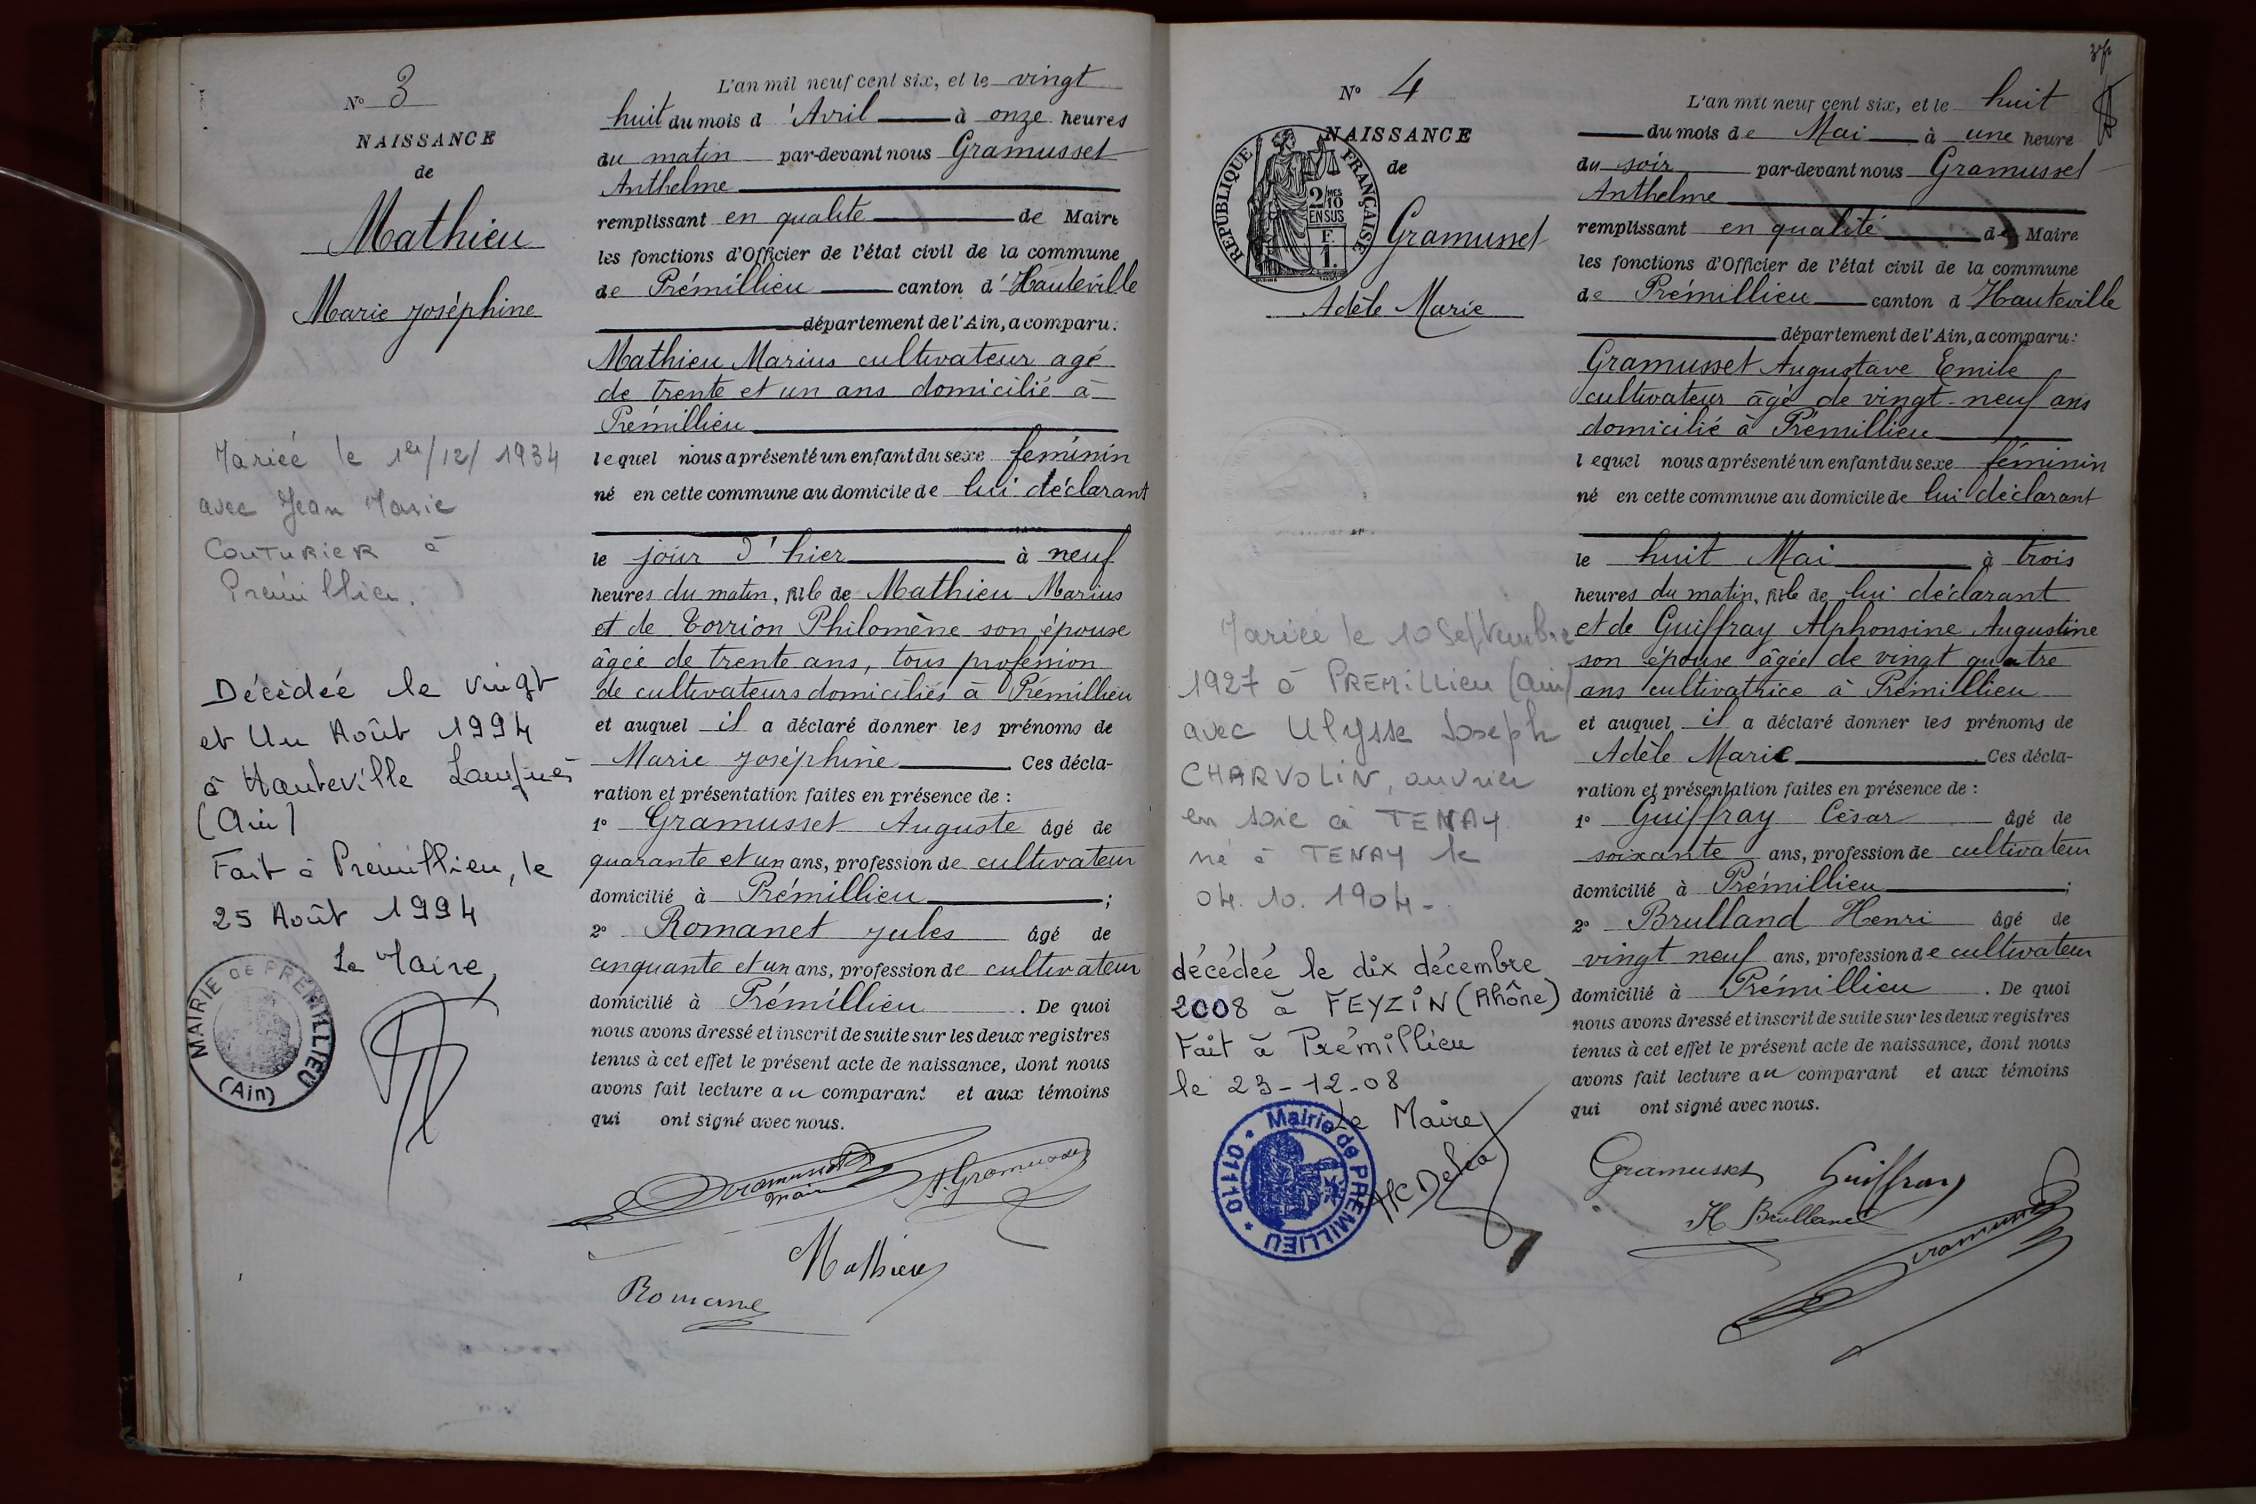 N° 3
NAISSANCE
de
Mathieu
Marie Joséphine
Mariée le 1er/12/1934
avec Jean Marie
COUTURIER à
Prémillieu.
Décédée le vingt
et Un Août 1994
à Hauteville Lompnès
(Ain)
Fait à Prémillieu, le
25 Août 1994
Le Maire,
MAIRIE DE PRÉMILLIEU
(Ain)
L'an mil neuf cent six, et le vingt
huit du mois d'Avril à onze heures
du matin par-devant nous Gramusset
Anthelme
remplissant en qualité de Maire
les fonctions d'Officier de l'état civil de la commune
de Prémillieu canton d'Hauteville
département de l'Ain, a comparu:
Mathieu Marius cultivateur agé
de trente et un ans domicilié à
Prémillieu
lequel nous a présenté un enfant du sexe féminin
né en cette commune au domicile de lui déclarant
le jour d'hier à neuf
heures du matin, fille de Mathieu Marius
et de Torrion Philomène son épouse
âgée de trente ans, tous profession
de cultivateurs domiciliés à Prémillieu
et auquel il a déclaré donner les prénoms de
Marie Joséphine Ces décla-
ration et présentation faites en présence de :
1° Gramusset Auguste âgé de
quarante et un ans, profession de cultivateur
domicilié à Prémillieu ;
2° Romanet Jules âgé de
cinquante et un ans, profession de cultivateur
domicilié à Prémillieu . De quoi
nous avons dressé et inscrit de suite sur les deux registres
tenus à cet effet le présent acte de naissance, dont nous
avons fait lecture au comparant et aux témoins
qui ont signé avec nous.
Gramusset A. Gramusset
maire
Mathieu
Romanet
N° 4
NAISSANCE
de
REPUBLIQUE FRANÇAISE
2/10
EN SUS
F.
1.
Gramusset
Adèle Marie
Mariée le 10 Septembre
1927 à PREMILLIEU (Ain)
avec Ulysse Joseph
CHARVOLIN, ouvrier
en soie à TENAY
né à TENAY le
04.10.1904-
décédée le dix décembre
2008 à FEYZIN (Rhône)
Fait à Prémillieu
le 23-12-08
Le Maire
Mairie de PREMILLIEU
01110
L'an mil neuf cent six, et le huit
du mois de Mai à une heure
du soir par-devant nous Gramusset
Anthelme
remplissant en qualité de Maire
les fonctions d'Officier de l'état civil de la commune
de Prémillieu canton d Hauteville
département de l'Ain, a comparu:
Gramusset Augustave Emile
cultivateur âgé de vingt-neuf ans
domicilié à Prémillieu
lequel nous a présenté un enfant du sexe féminin
né en cette commune au domicile de lui déclarant
le huit Mai à trois
heures du matin, fille de lui déclarant
et de Guiffray Alphonsine Augustine
son épouse âgée de vingt quatre
ans cultivatrice à Prémillieu
et auquel il a déclaré donner les prénoms de
Adèle Marie Ces décla-
ration et présentation faites en présence de :
1° Guiffray César âgé de
soixante ans, profession de cultivateur
domicilié à Prémillieu ;
2° Brulland Henri âgé de
vingt neuf ans, profession de cultivateur
domicilié à Prémillieu . De quoi
nous avons dressé et inscrit de suite sur les deux registres
tenus à cet effet le présent acte de naissance, dont nous
avons fait lecture au comparant et aux témoins
qui ont signé avec nous.
Gramusset Guiffray
H Brulland
Gramusset